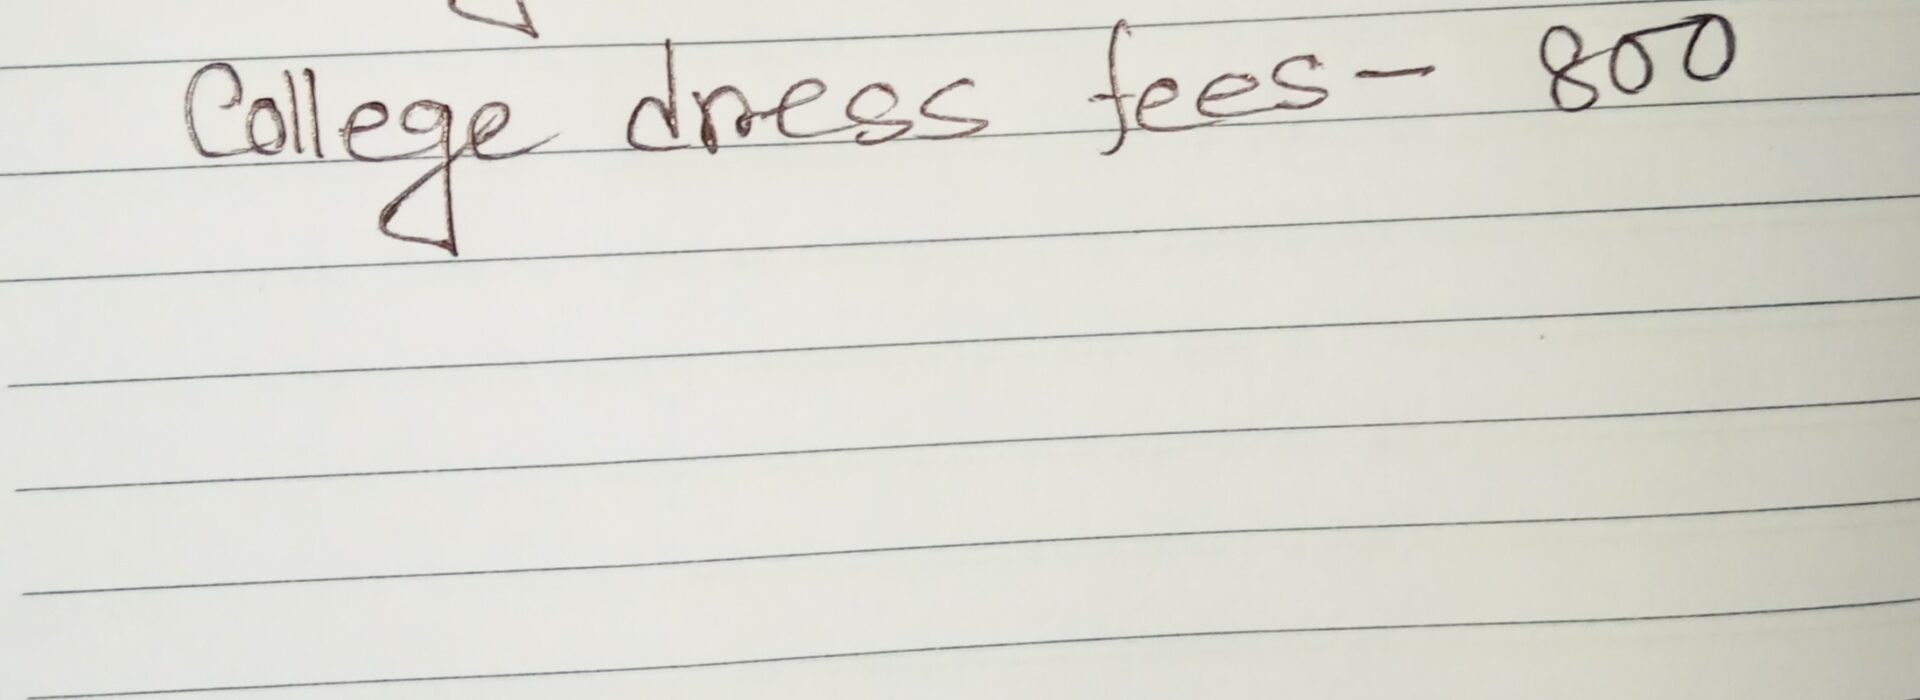 College dress fees - 800